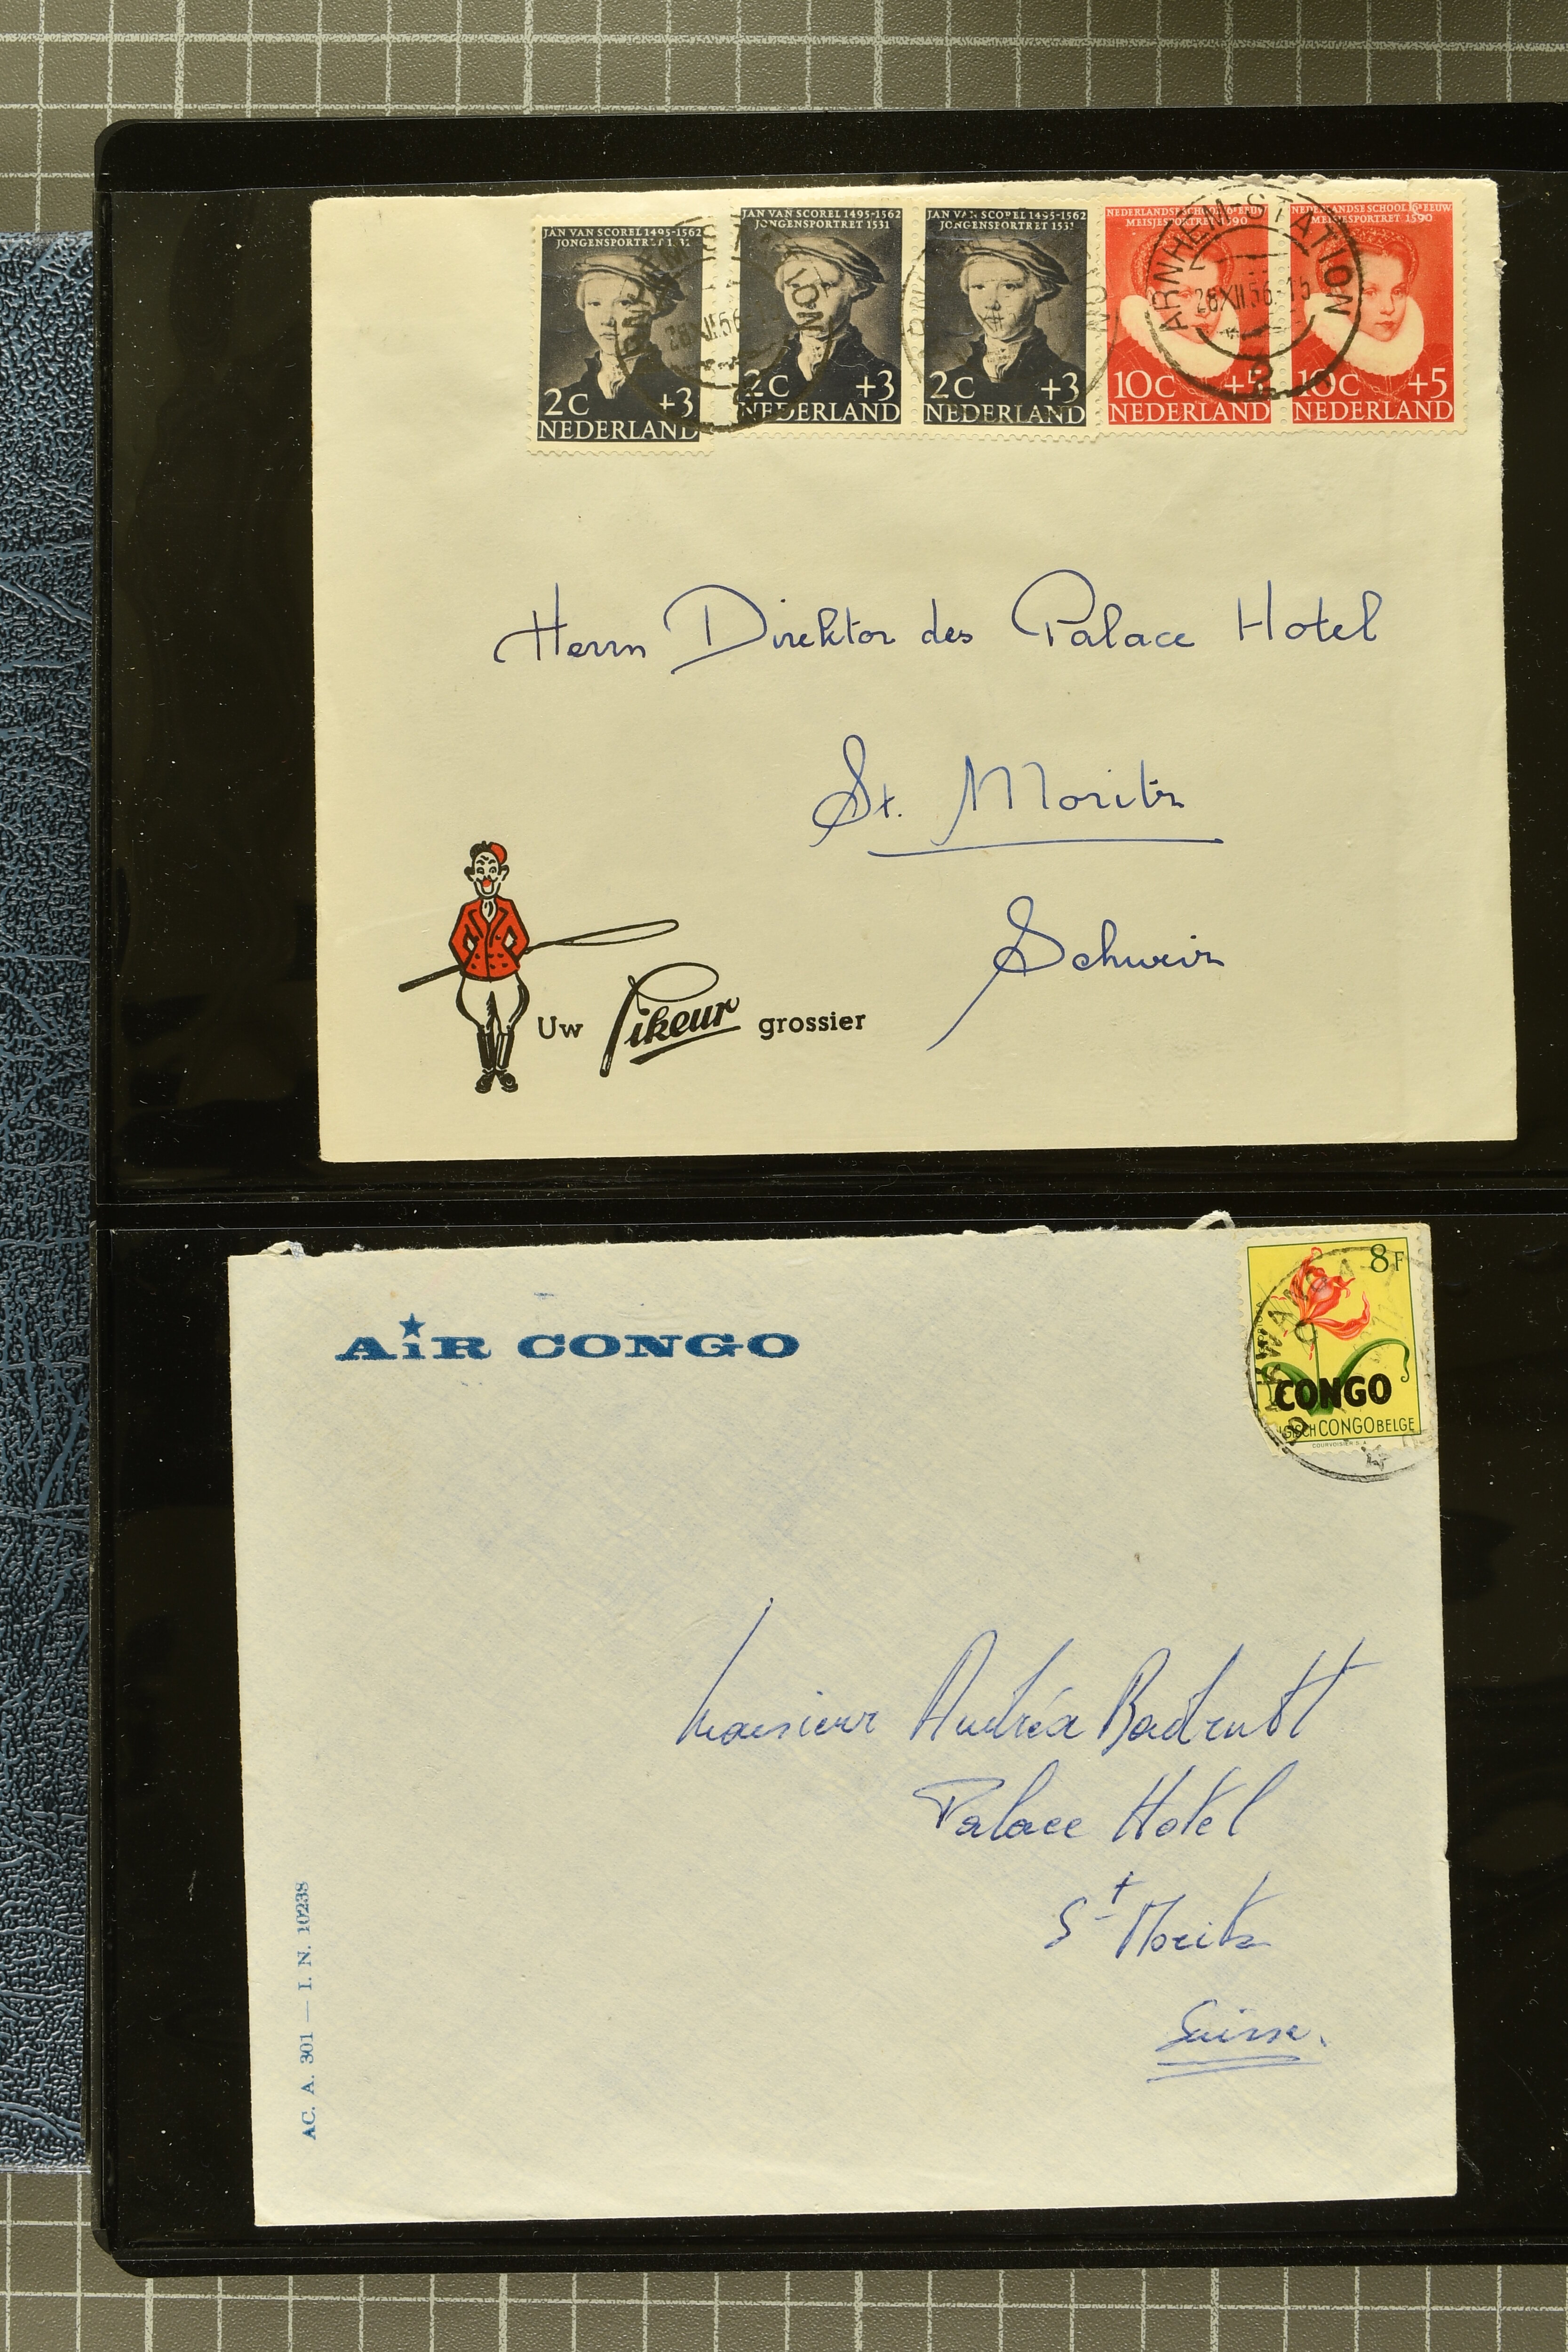 JAN VAN SCOREL 1495-1562
JONGENSPORTRET
2C +3
NEDERLAND
JAN VAN SCOREL 1495-1562
JONGENSPORTRET 1531
2C +3
NEDERLAND
JAN VAN SCOREL 1495-1562
JONGENSPORTRET 1531
2C +3
NEDERLAND
NEDERLANDSE SCHOOL 16e EEUW
MEISJESPORTRET 1590
10C +5
NEDERLAND
NEDERLANDSE SCHOOL 16e EEUW
MEISJESPORTRET 1590
10C +5
NEDERLAND
ARNHEM-STATION
28 XII 56-15
Herrn Direktor des Palace Hotel
St. Moritz
Schweiz
Uw Pikeur grossier
8F
CONGO
CONGO BELGE
COURVOISIER S.A.
AiR CONGO
Monsieur Andréa Badrutt
Palace Hotel
St Moritz
Suisse.
AC. A. 301 — I. N. 10238